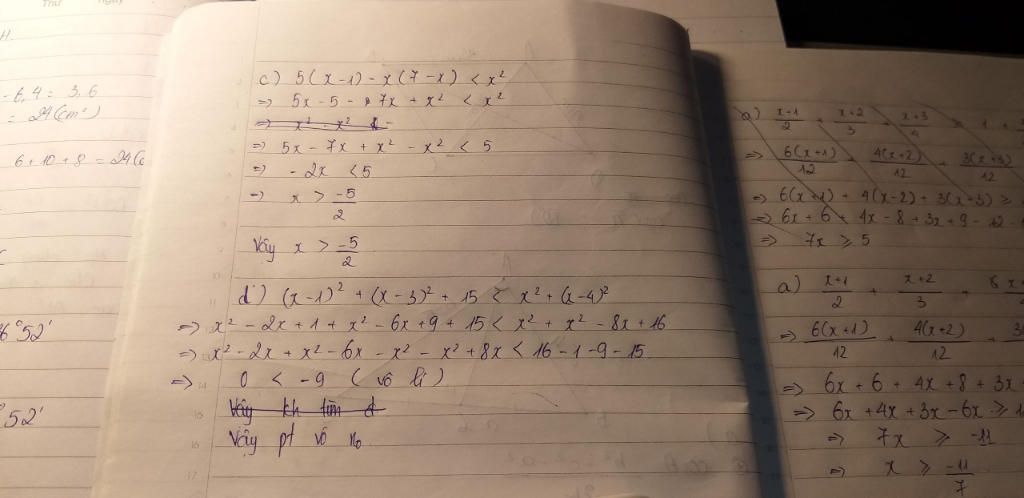 Thứ
ngày
H
- 6,4 = 3,6
= 24(cm²)
6 + 10 + 8 = 24(c
6°52'
°52'
c) 5(x-1) - x(7-x) < x²
=> 5x - 5 - 7x + x² < x²
=> x² - x²
=> 5x - 7x + x² - x² < 5
=> - 2x < 5
=> x > -5/2
Vậy x > -5/2
d) (x-1)² + (x-3)² + 15 < x² + (x-4)²
=> x² - 2x + 1 + x² - 6x + 9 + 15 < x² + x² - 8x + 16
=> x² - 2x + x² - 6x - x² - x² + 8x < 16 - 1 - 9 - 15
=> 0 < -9 ( vô lí )
Vậy kh tìm đ
Vậy pt vô no
a) x+1/2 + x+2/3 + x+3/4 ≥ 1 +
=> 6(x+1)/12 + 4(x+2)/12 + 3(x+3)/12
=> 6(x+1) + 4(x-2) + 3(x+3) ≥
=> 6x + 6 + 4x - 8 + 3x + 9 - 12
=> 7x ≥ 5
a) x+1/2 + x+2/3 + 8x
=> 6(x+1)/12 + 4(x+2)/12 + 3
=> 6x + 6 + 4x + 8 + 3x
=> 6x + 4x + 3x - 6x ≥ 1
=> 7x ≥ -11
=> x ≥ -11/7